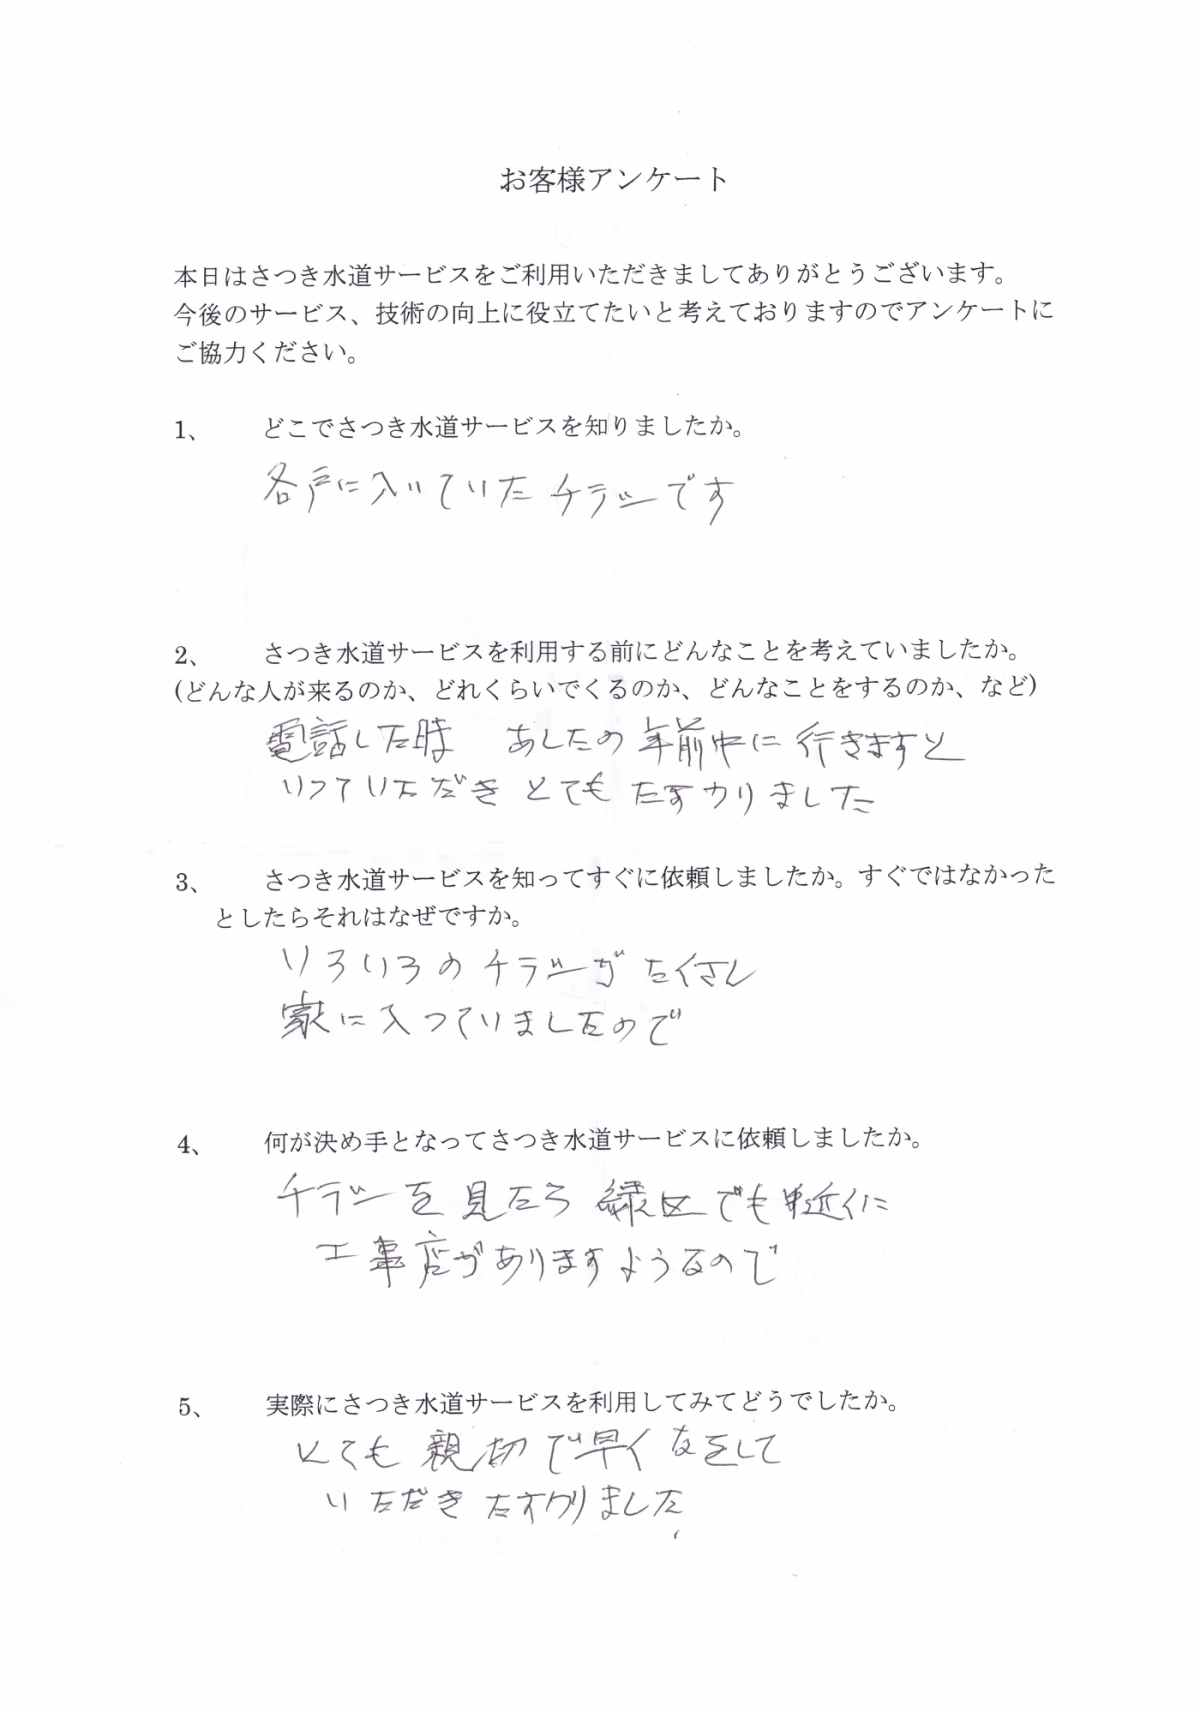 お客様アンケート
本日はさつき水道サービスをご利用いただきましてありがとうございます。
今後のサービス、技術の向上に役立てたいと考えておりますのでアンケートに
ご協力ください。
1、 どこでさつき水道サービスを知りましたか。
各戸に入いていたチラシーです
2、 さつき水道サービスを利用する前にどんなことを考えていましたか。
(どんな人が来るのか、どれくらいでくるのか、どんなことをするのか、など)
電話した時 あしたの年前中に行きますと
いっていただきとてもたすかりました
3、 さつき水道サービスを知ってすぐに依頼しましたか。すぐではなかった
としたらそれはなぜですか。
いろいろのチラシーがたくさん
家に入っていましたので
4、 何が決め手となってさつき水道サービスに依頼しましたか。
チラシーを見たら緑区でも近くに
工事店がありますようなので
5、 実際にさつき水道サービスを利用してみてどうでしたか。
とても親切で早く をして
いただきたすかりました